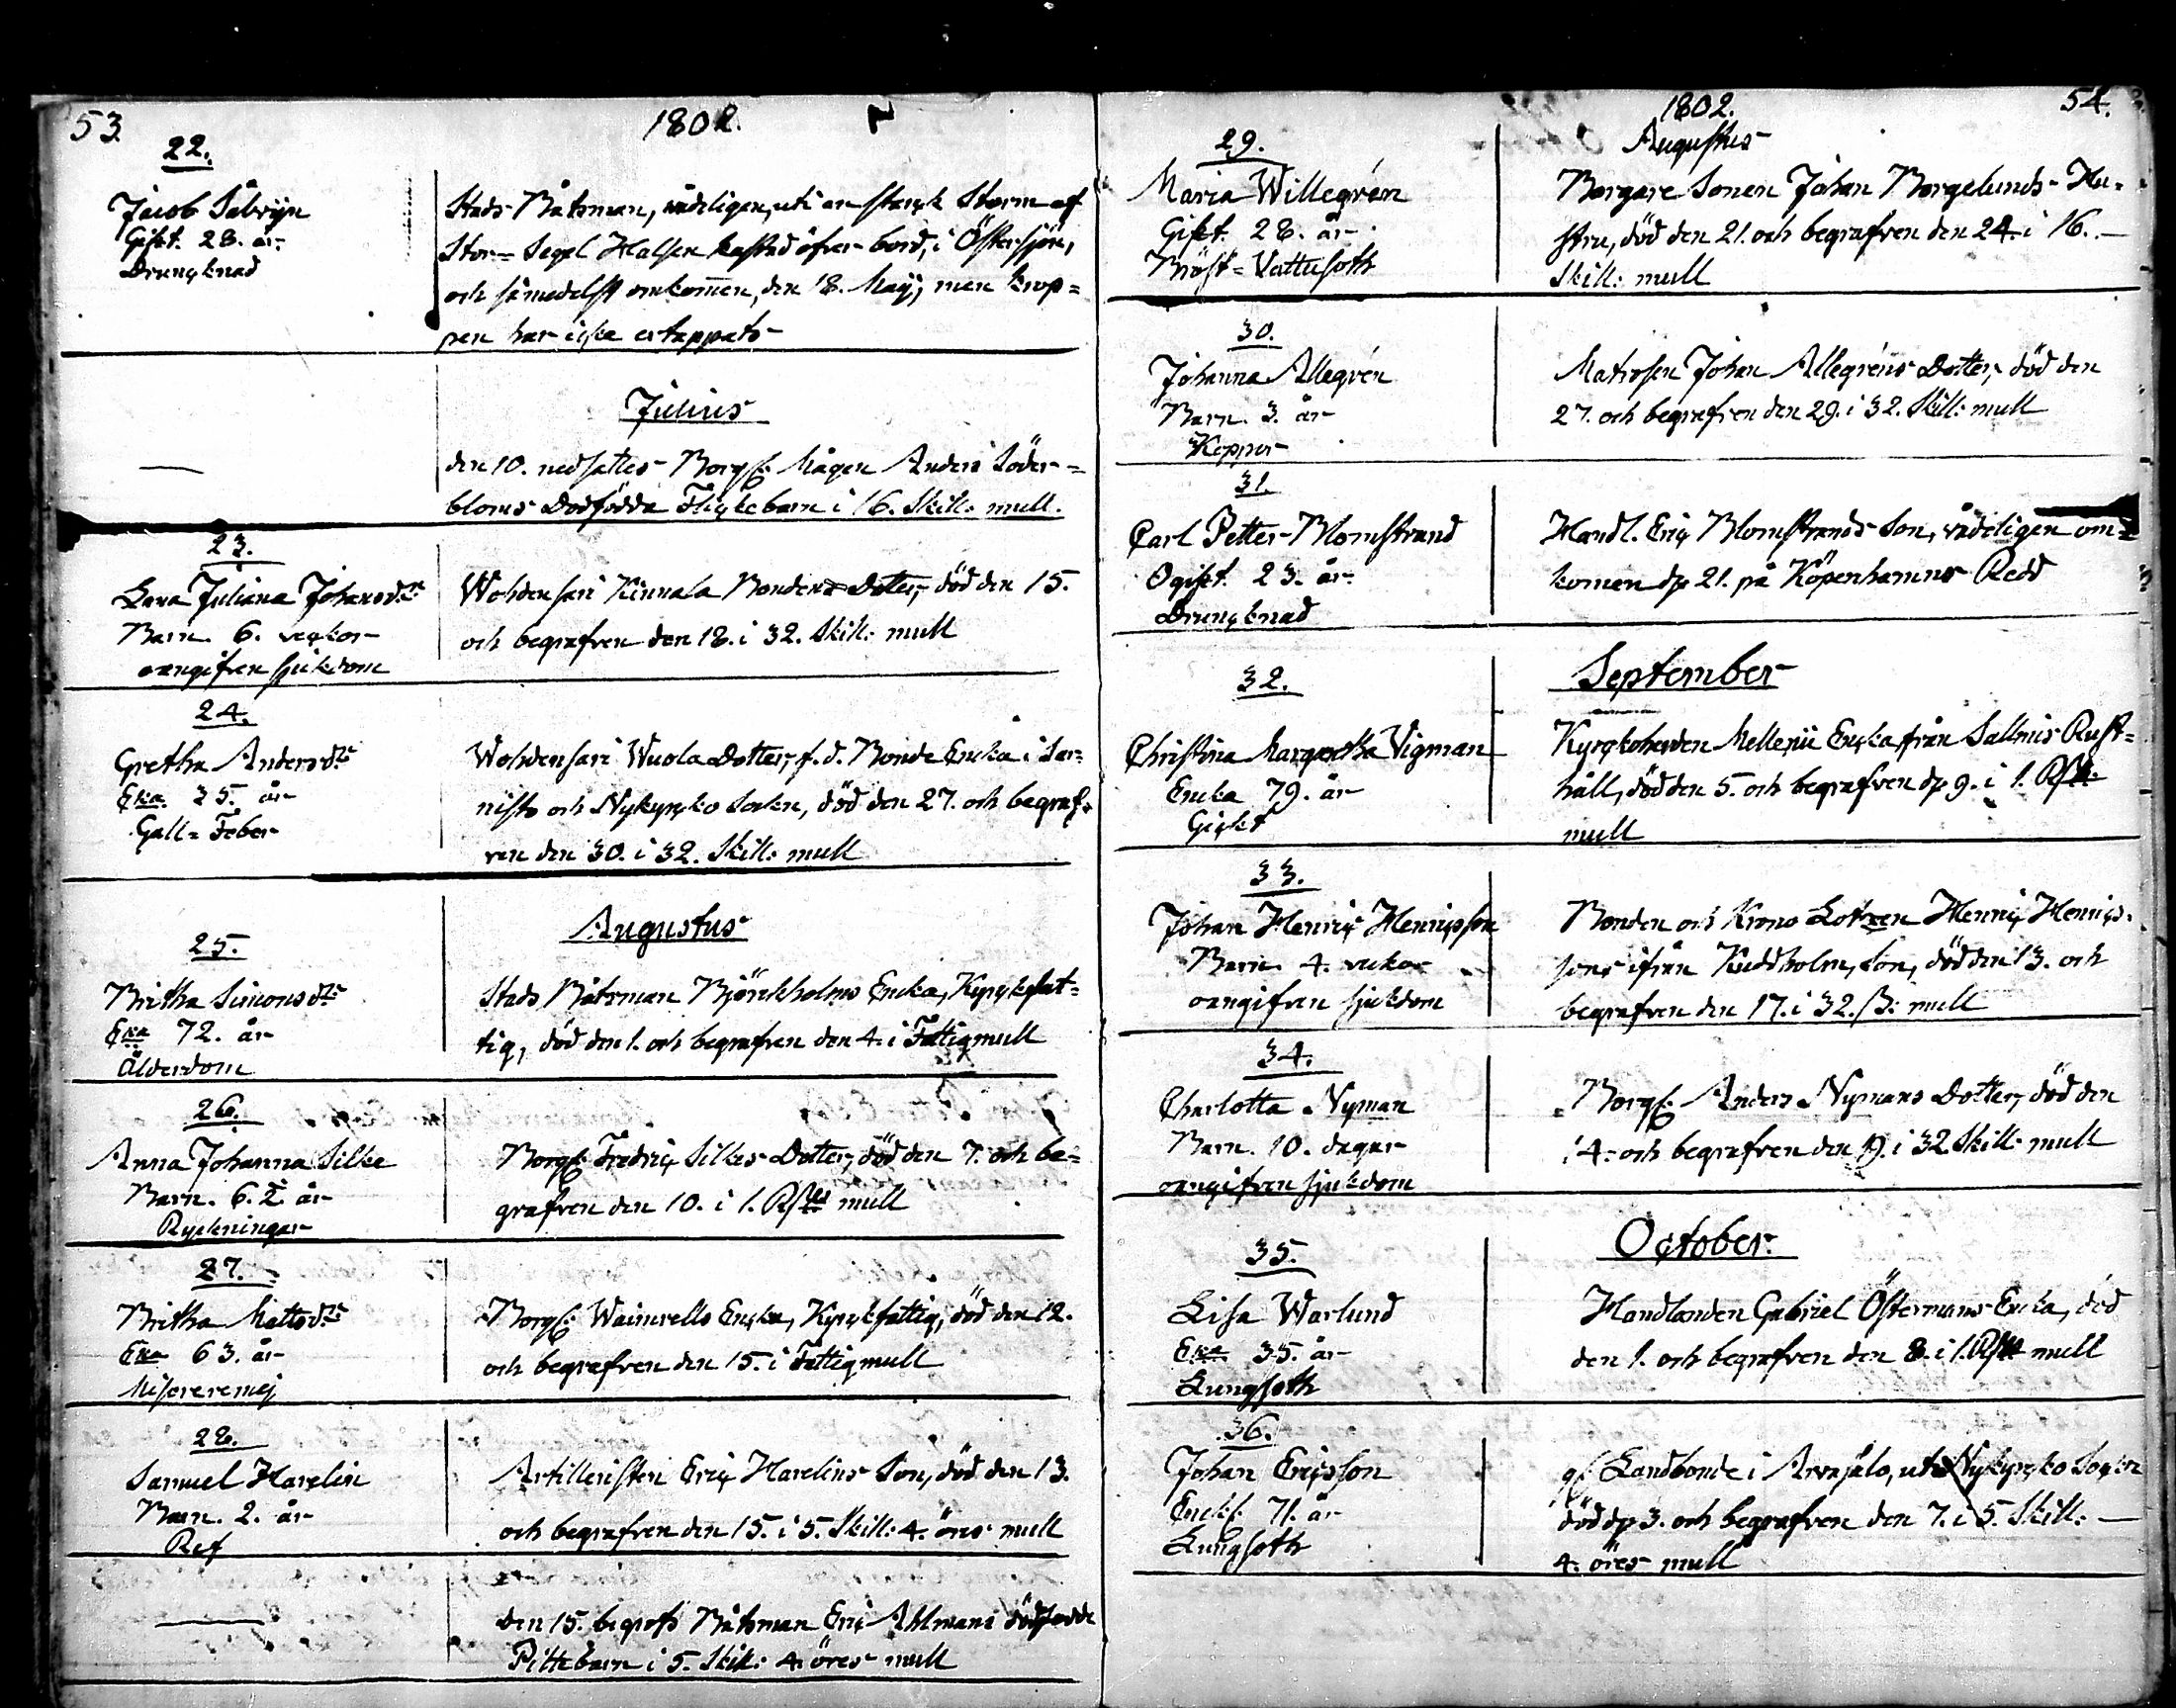 53. 1802.
22.
Jacob Sälvijn
Gift. 28. år
Drunçknad
Stads Båtsman, vådeligen, uti en starçk Storm af
Stor-Segel Halsen kastad öfver bord, i Östersjön,
och såmedelst omkommen, den 18. Maij, men krop-
pen har icke ertappats
Julius
den 10. nedsattes Borgs: Mågen Anders Söder-
bloms Dödfödda Fliçkebarn i 16. Skill: mull.
23.
Lena Juliana Johansdtr
Barn. 6. veçkor
oangifven sjukdom
Wohdensari Kinnala Bondens Dotter, död den 15.
och begrafven den 18. i 32. Skill: mull
24.
Gretha Andersdtr
Eka 35. år
Gall-Feber
Wohdensari Wuola Dotter, f.d. Bonde Encka i Sar-
nisto och Nykyrko Sockn, död den 27. och begraf-
ven den 30. i 32. Skill: mull
Augustus
25.
Britha Simonsdtr
Eka 72. år
Ålderdom
Stads Båtsman Björckholms Encka, Kyrckfat-
tig, död den 1. och begrafven den 4. i Fattigmull
26.
Anna Johanna Silke
Barn. 6. ½ år
Ryckningar
Borgs: Fredriç Silkes Dotter, död den 7. och be-
grafven den 10. i 1. Rsdlrs mull
27.
Britha Mattsdtr
Eka 63. år
Misereremej
Borgs: Wainrells Ençka, Kyrçkfattig, död den 12.
och begrafven den 15. i Fattigmull
28.
Samuel Harelin
Barn. 2. år
Ref
Artilleristen Eriç Harelins Son, död den 13.
och begrafven den 15. i 5. Skill: 4. öres mull
den 15. begrofs Båtsman Eriç Ahlmans dödfödde
Piltebarn i 5. Skill: 4. öres mull
1802. 54.
Augustus
29.
Maria Willegrén
Gift. 28. år
Bröst-Vattusoth
Borgare Sonen Johan Borgelunds Hu-
stru, död den 21. och begrafven den 24. i 16.
Skill: mull
30.
Johanna Allegrén
Barn. 3. år
Koppor
Matrosen Johan Allegréns Dotter, död den
27. och begrafven den 29. i 32. Skill: mull
31.
Carl Petter Blomstrand
Ogift. 23. år
Drunçknad
Handl. Eriç Blomstrands Son, vådeligen om-
komen dn 21. på Köpenhamns Redd
September
32.
Christina Margretha Vigman
Encka 79. år
Giçkt
Kyrçkoherden Melleni Ençka, från Sallmis Rust-
håll, död den 5. och begrafven dn 9. i 1. Rsdlr
mull
33.
Johan Henriç Henriçsson
Barn. 4. veckor
oangifven sjukdom
Bonden och Krono Lotzen Henriç Henriçs-
sons ifrån Kuddholm, Son, död den 13. och
begrafven den 17. i 32. ß: mull
34.
Charlotta Nyman
Barn. 10. dagar
oangifven sjukdom
Borgs: Anders Nymans Dotter, död den
14. och begrafven den 19. i 32 Skill: mull
October.
35.
Lisa Warlund
Eka 35. år
Lungsoth
Handlanden Gabriel Östermans Encka, död
den 1. och begrafven den 8. i 1. Rsdlr mull
36.
Johan Eriçsson
Enckl. 71. år
Lungsoth
Landbonde i Arvasalo, uti Nykyrçko Soçken
död dn 3. och begrafven den 7. i 5. Skill:
4. öres mull